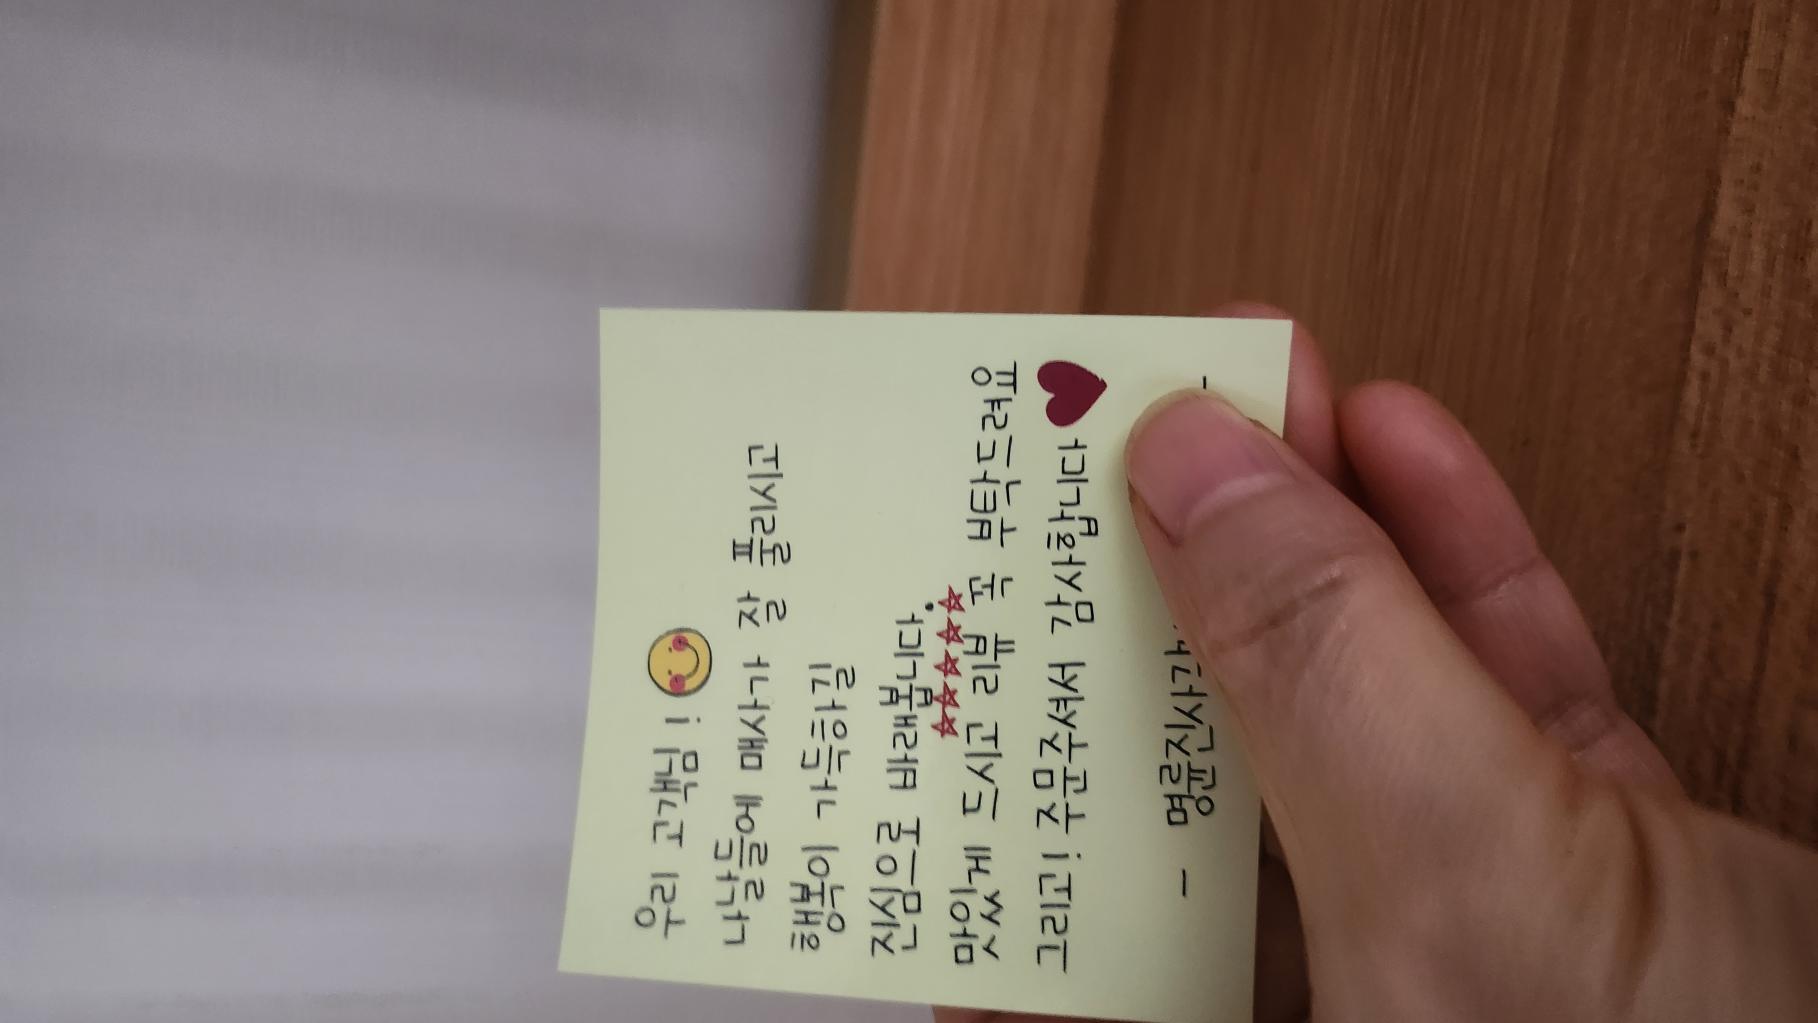 우리 고객님!
나날들에 매사가 잘 풀리시고
행복이 가득하길
진심으로 바래봅니다.
☆☆☆☆☆
맛있게 드시고 리뷰 꼭 부탁드려요
그리고! 주문주셔서 감사합니다
- 명륜진사갈 -